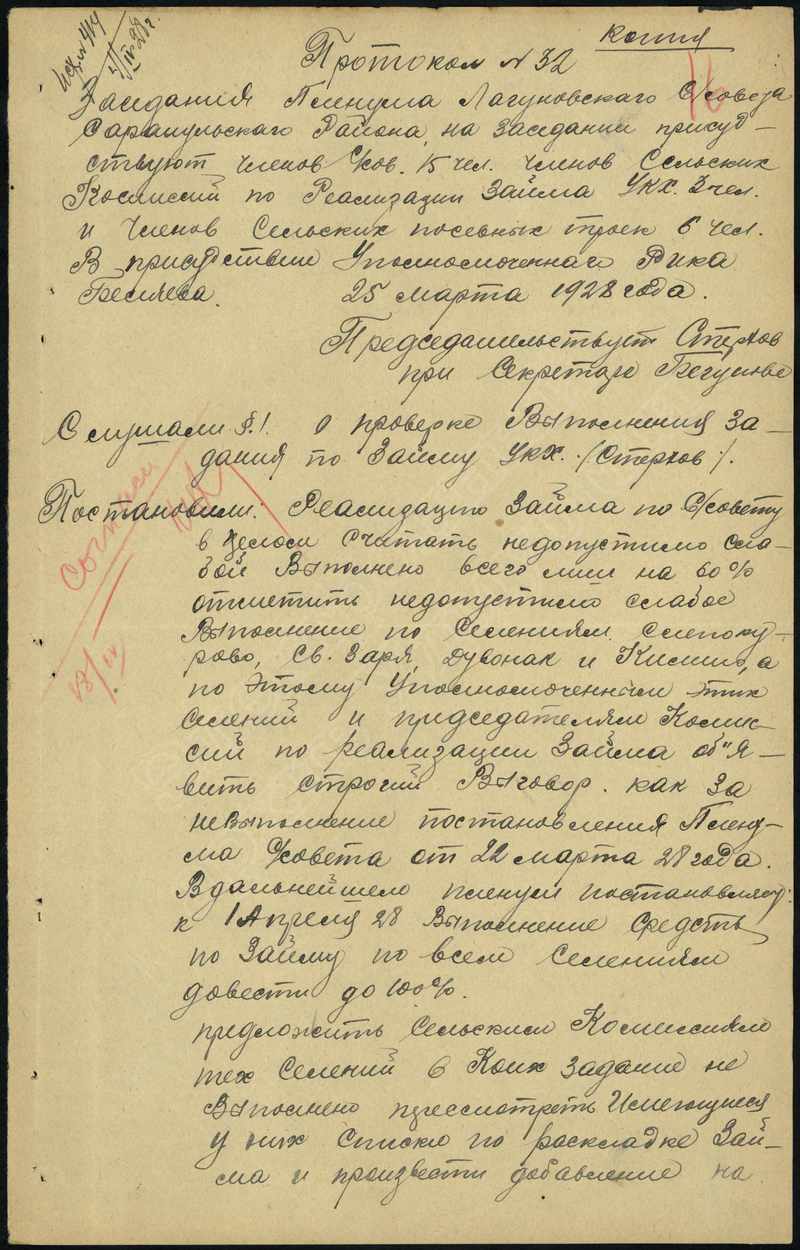 копия
Исх. № 414
Протокол № 32
Заседания Пленума Лагуновского С/совета
Сарапульского Района, на заседании присуд-
ствуют членов С/сов. 15 чел. членов Сельских
Комиссий по Реализации Займа УКХ. 2 чел.
и Членов Сельских посевных троек 6 чел.
В присудствии Уполномоченнаго Рика
Беляева. 25 марта 1928 года.
Председательствует Стерхов
при Секретаре
Слушали §.1. О проверке Выполнения За-
дания по Займу УКХ. /Стерхов/.
Постановили: Реализацию Займа по С/совету
в целом Считать недопустимо сла-
бой Выполнено всего лиш на 60%
отметить недопустимо слабое
Выполнение по Селениям
Св. Заря, и а
по этому Уполномоченным этих
Селений и председателям Комис-
сий по реализации Займа об"я-
вить строгий Выговор. как за
невыполнение постановления Плену-
ма С/совета от 22 марта 28 года.
В дальнейшем пленум постановляет:
к 1 Апреля 28 Выполнение Средств
по Займу по всем Селениям
довести до 100%.
предложить Сельским Комиссиям
тех Селений в Коих задание не
Выполнено пересмотреть Имеющиеся
у них Списки по раскладке Зай-
ма и произвести добавление на